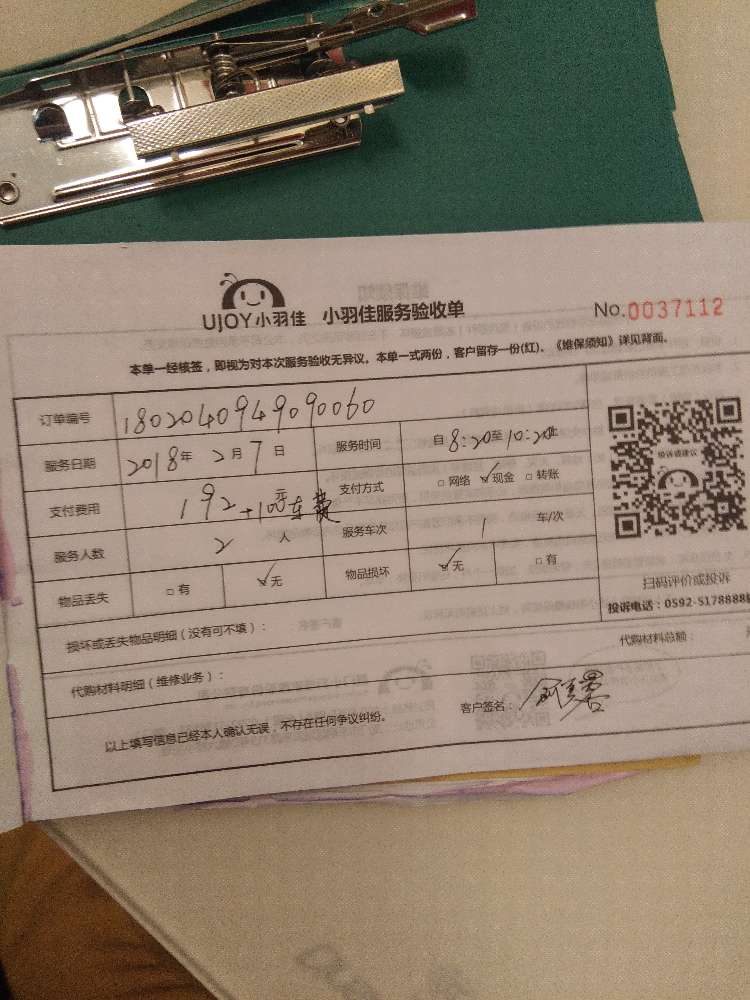 UJOY小羽佳 小羽佳服务验收单 No.0037112
本单一经核签，即视为对本次服务验收无异议。本单一式两份，客户留存一份(红)。《维保须知》详见背面。
订单编号 1802040949090060
服务日期 2018年 2月 7日 服务时间 自8:20至10:20止
支付费用 192+10元车费 支付方式 □网络 ☑现金 □转账
服务人数 2人 服务车次 1 车/次
物品丢失 □有 ☑无 物品损坏 ☑无 □有
投诉或建议
扫码评价或投诉
投诉电话：0592-5178888
损坏或丢失物品明细（没有可不填）：
代购材料明细（维修业务）： 代购材料总额：
以上填写信息已经本人确认无误，不存在任何争议纠纷。 客户签名：